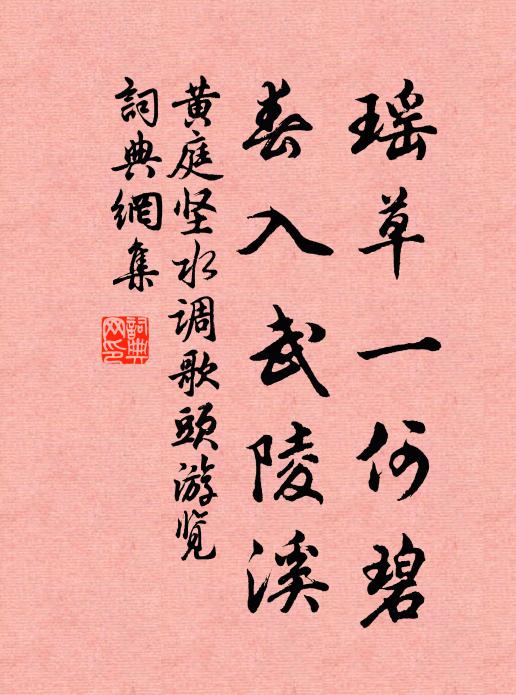 瑶草一何碧
春入武陵溪
黄庭坚水调歌頭游览
詞典網集
詞典网印